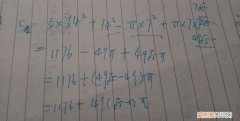 S = 6×14² + 14² - π×7² + π×7×7√5
= 1176 - 49π + 49√5 π
= 1176 + (49√5 - 49)π
= 1176 + 49(√5 - 1)π